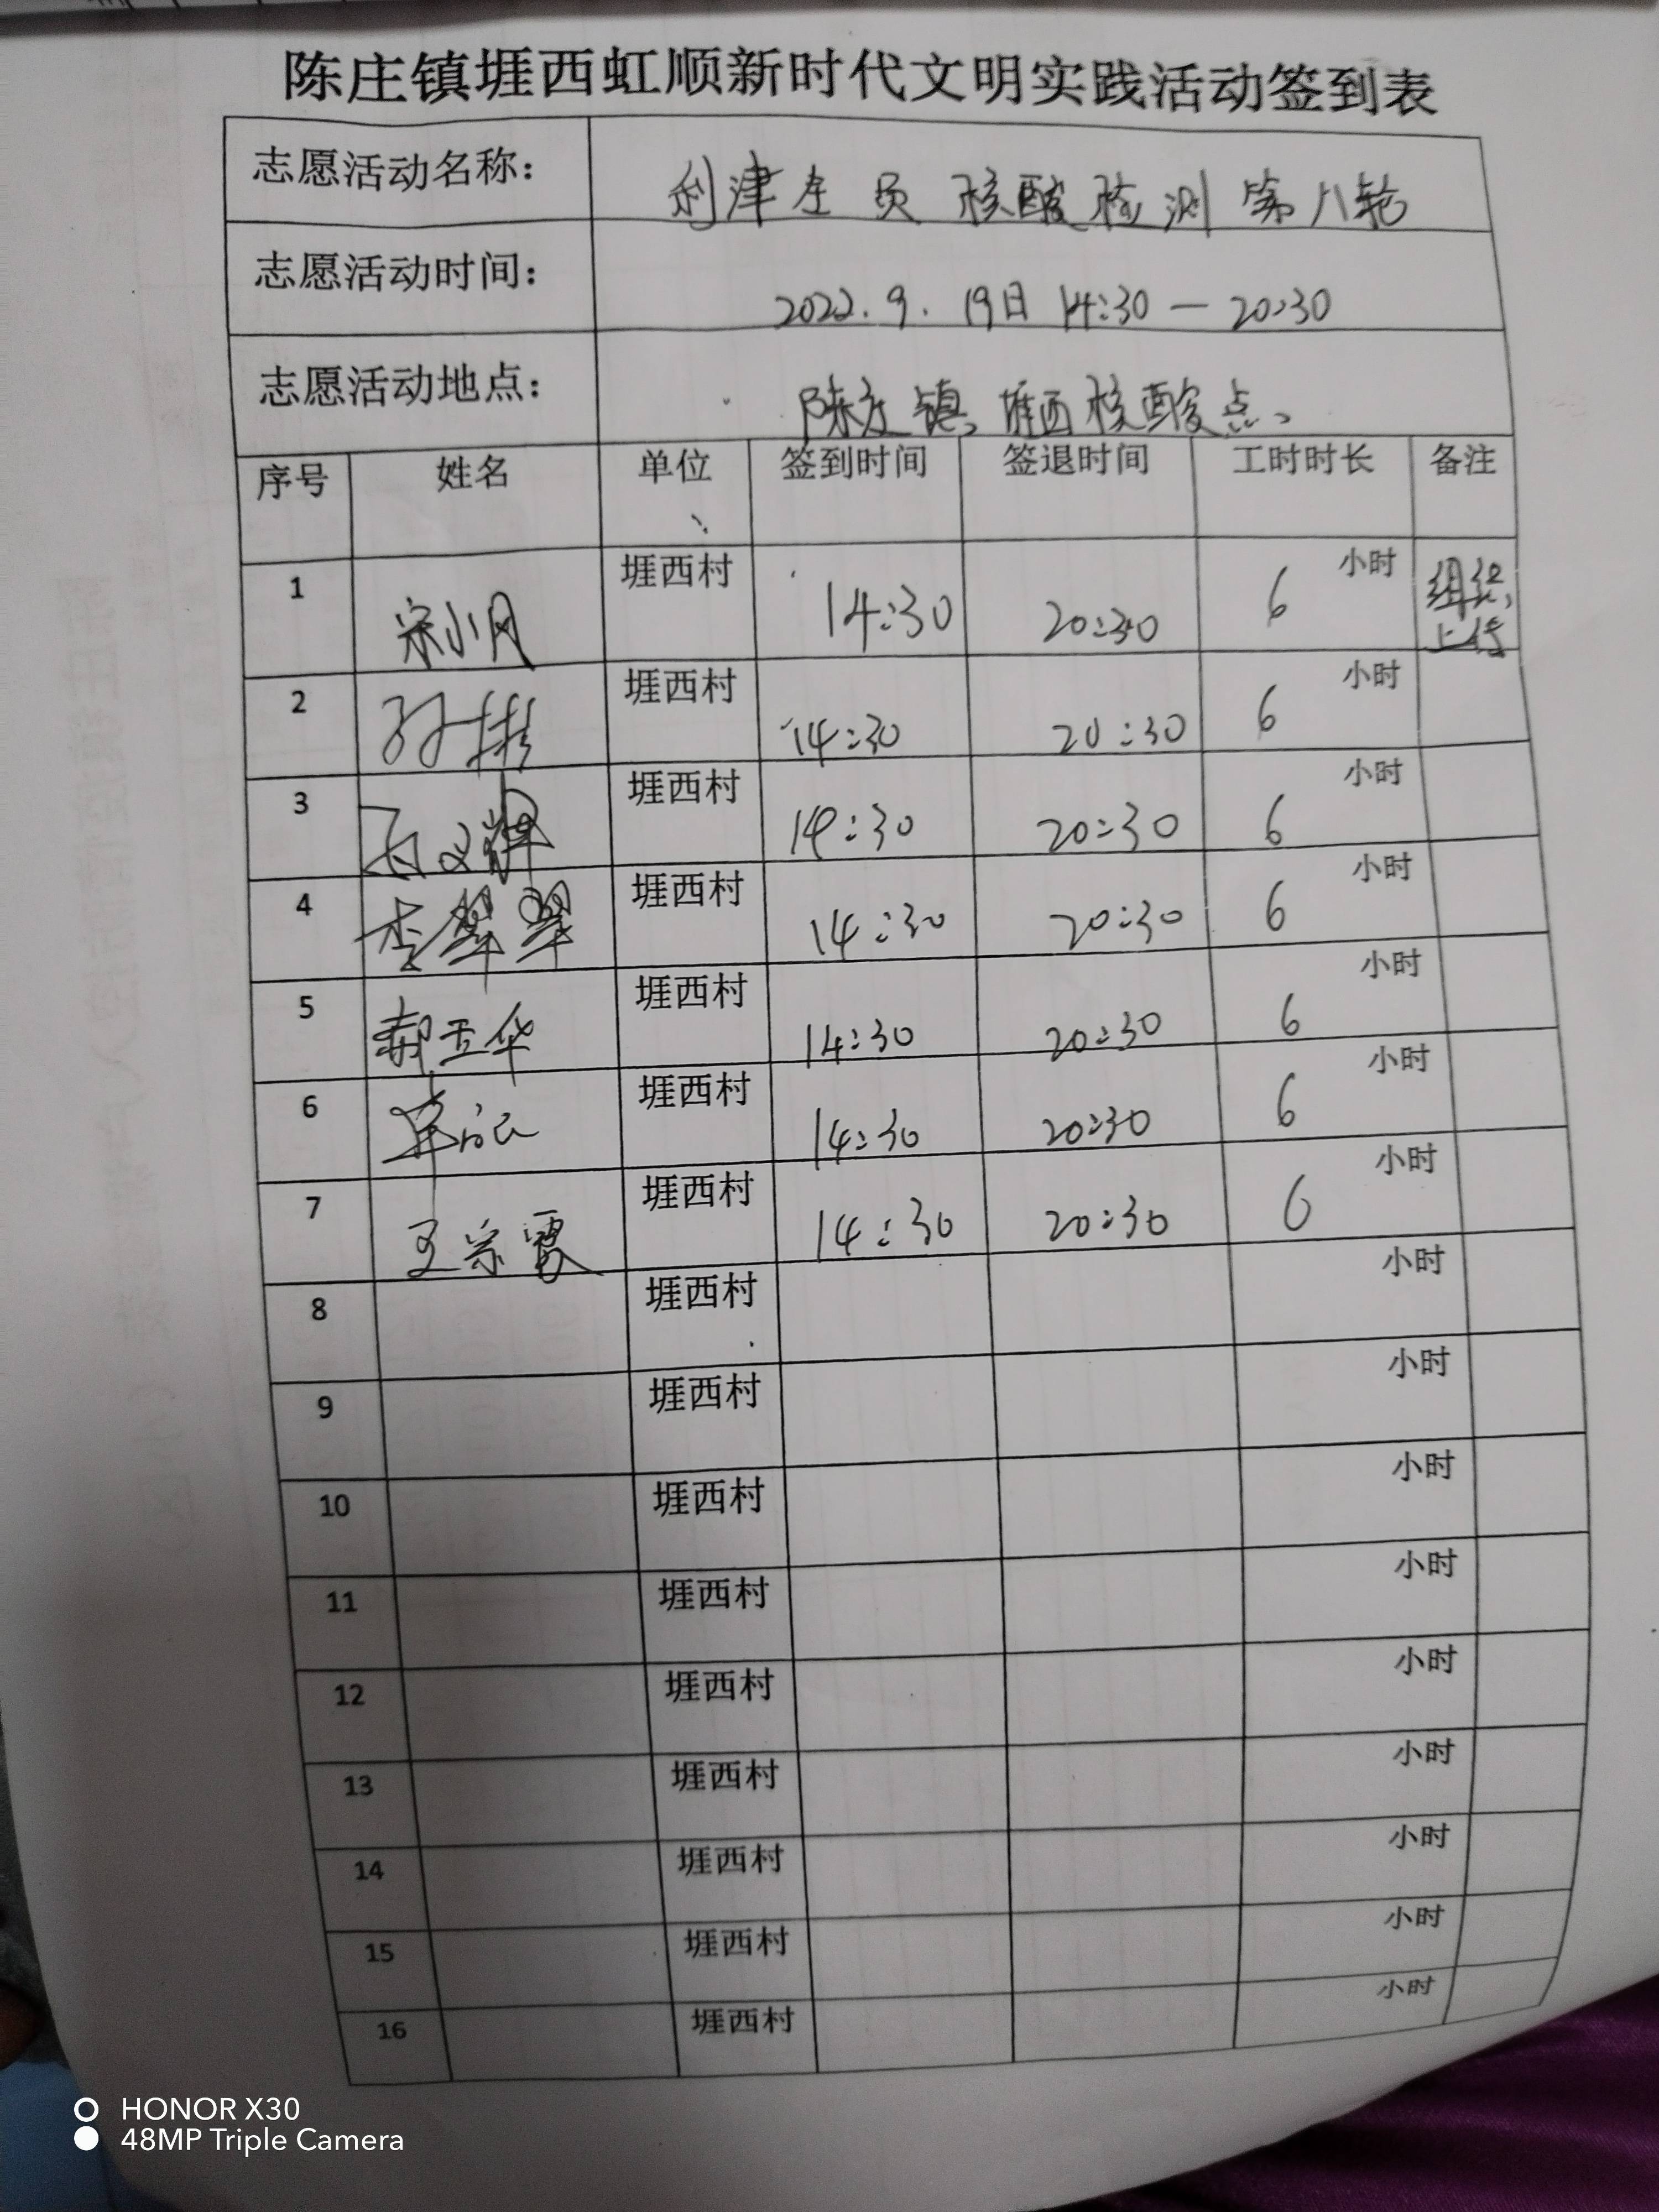 陈庄镇堐西虹顺新时代文明实践活动签到表
志愿活动名称： 利津全员核酸检测第八轮
志愿活动时间： 2022.9.19日 14:30—20:30
志愿活动地点： 陈庄镇堐西核酸点
序号 姓名 单位 签到时间 签退时间 工时时长 备注
1 宋小月 堐西村 14:30 20:30 6 小时 组织上传
2 孙 堐西村 14:30 20:30 6 小时
3 堐西村 14:30 20:30 6 小时
4 李翠翠 堐西村 14:30 20:30 6 小时
5 郝玉华 堐西村 14:30 20:30 6 小时
6 堐西村 14:30 20:30 6 小时
7 王宗霞 堐西村 14:30 20:30 6 小时
8 堐西村 小时
9 堐西村 小时
10 堐西村 小时
11 堐西村 小时
12 堐西村 小时
13 堐西村 小时
14 堐西村 小时
15 堐西村 小时
16 堐西村 小时
HONOR X30
48MP Triple Camera